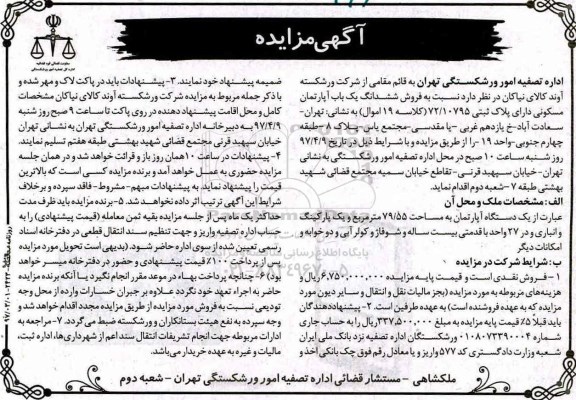 آگهی مزایده
اداره تصفیه امور ورشکستگی تهران به قائم مقامی از شرکت ورشکسته
آوند کالای نیاکان در نظر دارد نسبت به فروش ششدانگ یک باب آپارتمان
مسکونی دارای پلاک ثبتی ۷۲/۱۰۷۹۵ (کلاسه ۱۹ اموال) به نشانی: تهران-
سعادت آباد-خ یازدهم غربی -پا مقدسی-مجتمع یاس- -طبقه
چهارم جنوبی-واحد ۱۹ -را از طریق مزایده و با شرایط ذیل در تاریخ ۹۷/۴/۹
روز شنبه ساعت ۱۰ صبح در محل اداره تصفیه امور ورشکستگی به نشانی
تهران-خیابان سپهبد قرنی-تقاطع خیابان سمیه مجتمع قضائی شهید
بهشتی طبقه ۷-شعبه دوم اقدام نماید.
الف: مشخصات ملک و محل آن
عبارت از یک دستگاه آپارتمان به مساحت ۷۹/۵۵ مترمربع ویک پارکینگ
و انباری و در ۲۷ واحد با قدمتی بیست ساله و شوفاژ و کولر آبی و دو خوابه و
امکانات دیگر
ب: شرایط شرکت در مزایده
۱-فروش نقدی است و قیمت پایه مزایده ۶,۷۵۰,۰۰۰,۰۰۰ ریال و
هزینه‌های مربوطه به مورد مزایده (بجز مالیات نقل و انتقال و سایر دیون مورد
مزایده که به عهده فروشنده است) به عهده طرفین است. ۲-پیشنهاددهندگان
باید قبلاً ۵٪ قیمت پایه مزایده به مبلغ ۳۳۷,۵۰۰,۰۰۰ ریال را به حساب جاری
شماره ۰۱۰۸۰۷۳۳۹۰۰۰۴ ورشکستگان اداره تصفیه نزد بانک ملی ایران
شعبه وزارت دادگستری کد ۵۷۷ واریز و یا معادل رقم فوق چک بانکی اخذ و
ضمیمه پیشنهاد خود نمایند. ۳-پیشنهادات باید در پاکت لاک و مهر شده و
با ذکر جمله مربوط به مزایده شرکت ورشکسته آوند کالای نیاکان مشخصات
کامل و محل اقامت پیشنهاد دهنده در روی پاکت تا ساعت ۹ صبح روز شنبه
۹۷/۴/۹ به دبیرخانه اداره تصفیه امور ورشکستگی تهران به نشانی تهران
خیابان سپهبد قرنی مجتمع قضائی شهید بهشتی طبقه هفتم تسلیم نمایند.
۴-پیشنهادات در ساعت ۱۰ همان روز باز و قرائت خواهد شد و در همان جلسه
مزایده حضوری به عمل خواهد آمد و برنده مزایده کسی است که بالاترین
قیمت را پیشنهاد نماید. به پیشنهادات مبهم-مشروط-فاقد سپرده و برخلاف
شرایط این آگهی ترتیب اثر داده نخواهد شد. ۵-برنده مزایده باید ظرف مدت
حداکثر یک ماه پس از جلسه مزایده بقیه ثمن معامله (قیمت پیشنهادی) را به
حساب اداره تصفیه واریز و جهت تنظیم سند انتقال قطعی در دفترخانه اسناد
رسمی تعیین شده از سوی اداره حاضر شود. (بدیهی است تحویل مورد مزایده
پس از پرداخت ۱۰۰٪ قیمت پیشنهادی و حضور در دفترخانه میسر خواهد
بود) ۶-چنانچه پرداخت بهاء در موعد مقرر انجام نگیرد یا آنکه برنده مزایده
حاضر به اجراء تعهد خود نگردد علاوه بر جبران خسارات وارده از محل وجه
تودیعی نسبت به فروش مورد مزایده از طریق مزایده مجدد اقدام خواهد شد و
وجه سپرده به نفع هیئت بستانکاران و ورشکسته ضبط می‌گردد. ۷-مراجعه به
ادارات مربوطه جهت انجام تشریفات انتقال سند اعم از شهرداری‌ها، اداره ثبت،
مالیات و غیره به عهده خریدار می‌باشد.
ملکشاهی - مستشار قضائی اداره تصفیه امور ورشکستگی تهران - شعبه دوم